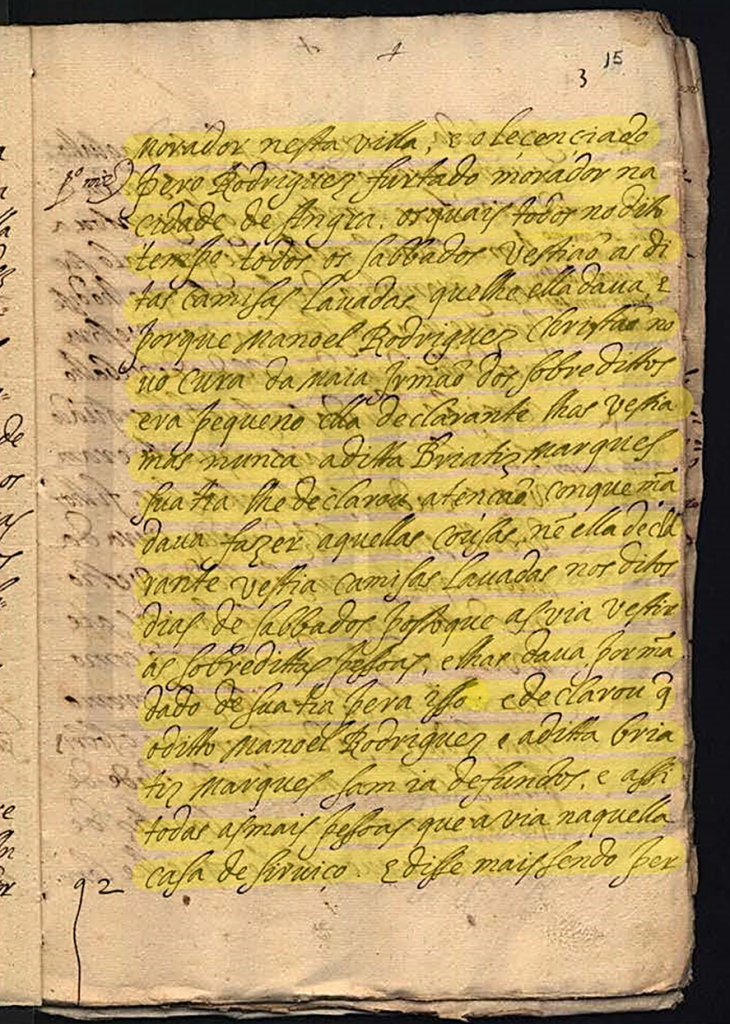 15
3
morador nesta villa, e o lecenciado
pero Rodriguez furtado morador na
cidade de Angra. os quais todos no dito
tempo todos os sabbados vestiaõ as di
tas camisas lauadas que lhe ella daua, E
porque Manoel Rodriguez Christaõ no
uo cura da Maia Irmaõ dos sobredittos
era pequeno ella declarante lhas vestia
mas nunca a ditta Briatiz Marques
sua tia lhe declarou a tencaõ conque mã
daua fazer aquellas cousas, nẽ ella decla
rante vestia camisas lauadas nos ditos
dias de sabbados postoque as via vestir
as sobredittas pessoas, e lhas daua por mã
dado de sua tia pera isso. e declarou q̃
o ditto Manoel Rodriguez e a ditta bria
tiz Marques sam ia defuntos, e assi
todas as mais pessoas que avia naquella
casa de seruiço. E disse mais sendo per
92